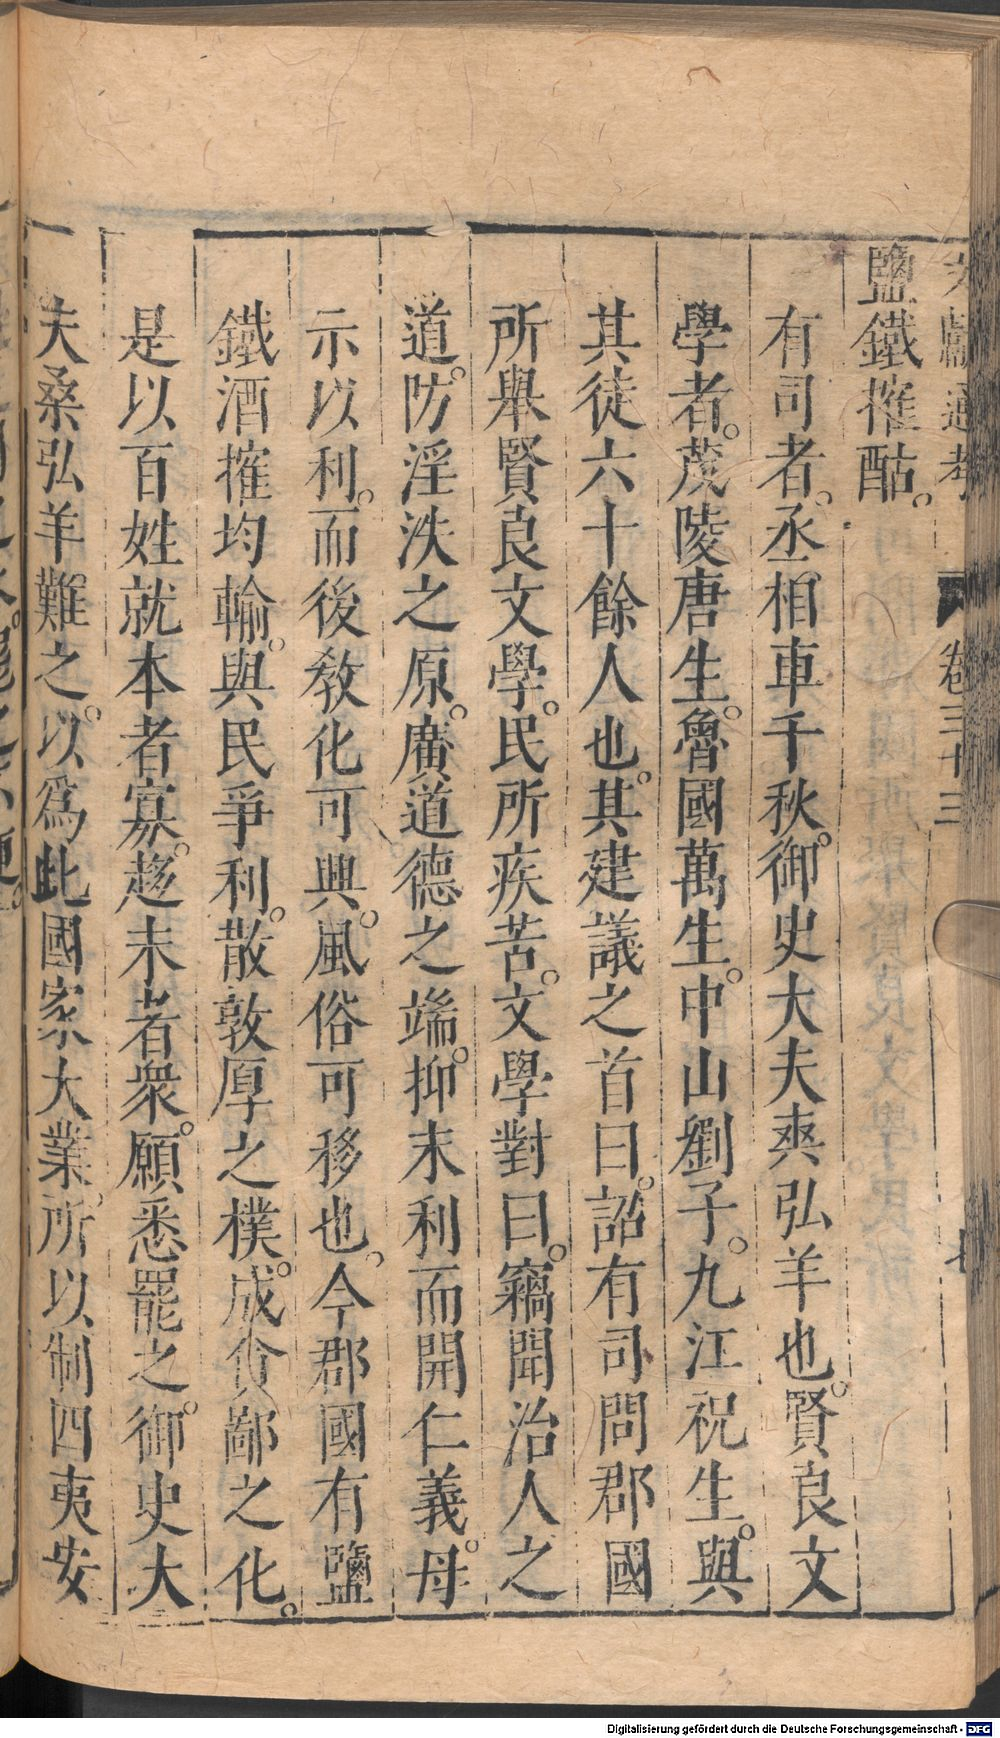 文獻通考 卷三十三 七
鹽鐵搉酤。
有司者。丞相車千秋。御史大夫桑弘羊也。賢良文
學者。茂陵唐生。魯國萬生。中山劉子。九江祝生。與
其徒六十餘人也。其建議之首曰。詔有司問郡國
所舉賢良文學。民所疾苦。文學對曰。竊聞治人之
道。防淫泆之原。廣道德之端。抑末利而開仁義。毋
示以利。而後敎化可興。風俗可移也。今郡國有鹽
鐵酒搉均輸。與民爭利。散敦厚之樸。成貪鄙之化。
是以百姓就本者寡。趍末者衆。願悉罷之。御史大
夫桑弘羊難之。以爲此國家大業。所以制四夷安
Digitalisierung gefördert durch die Deutsche Forschungsgemeinschaft - DFG